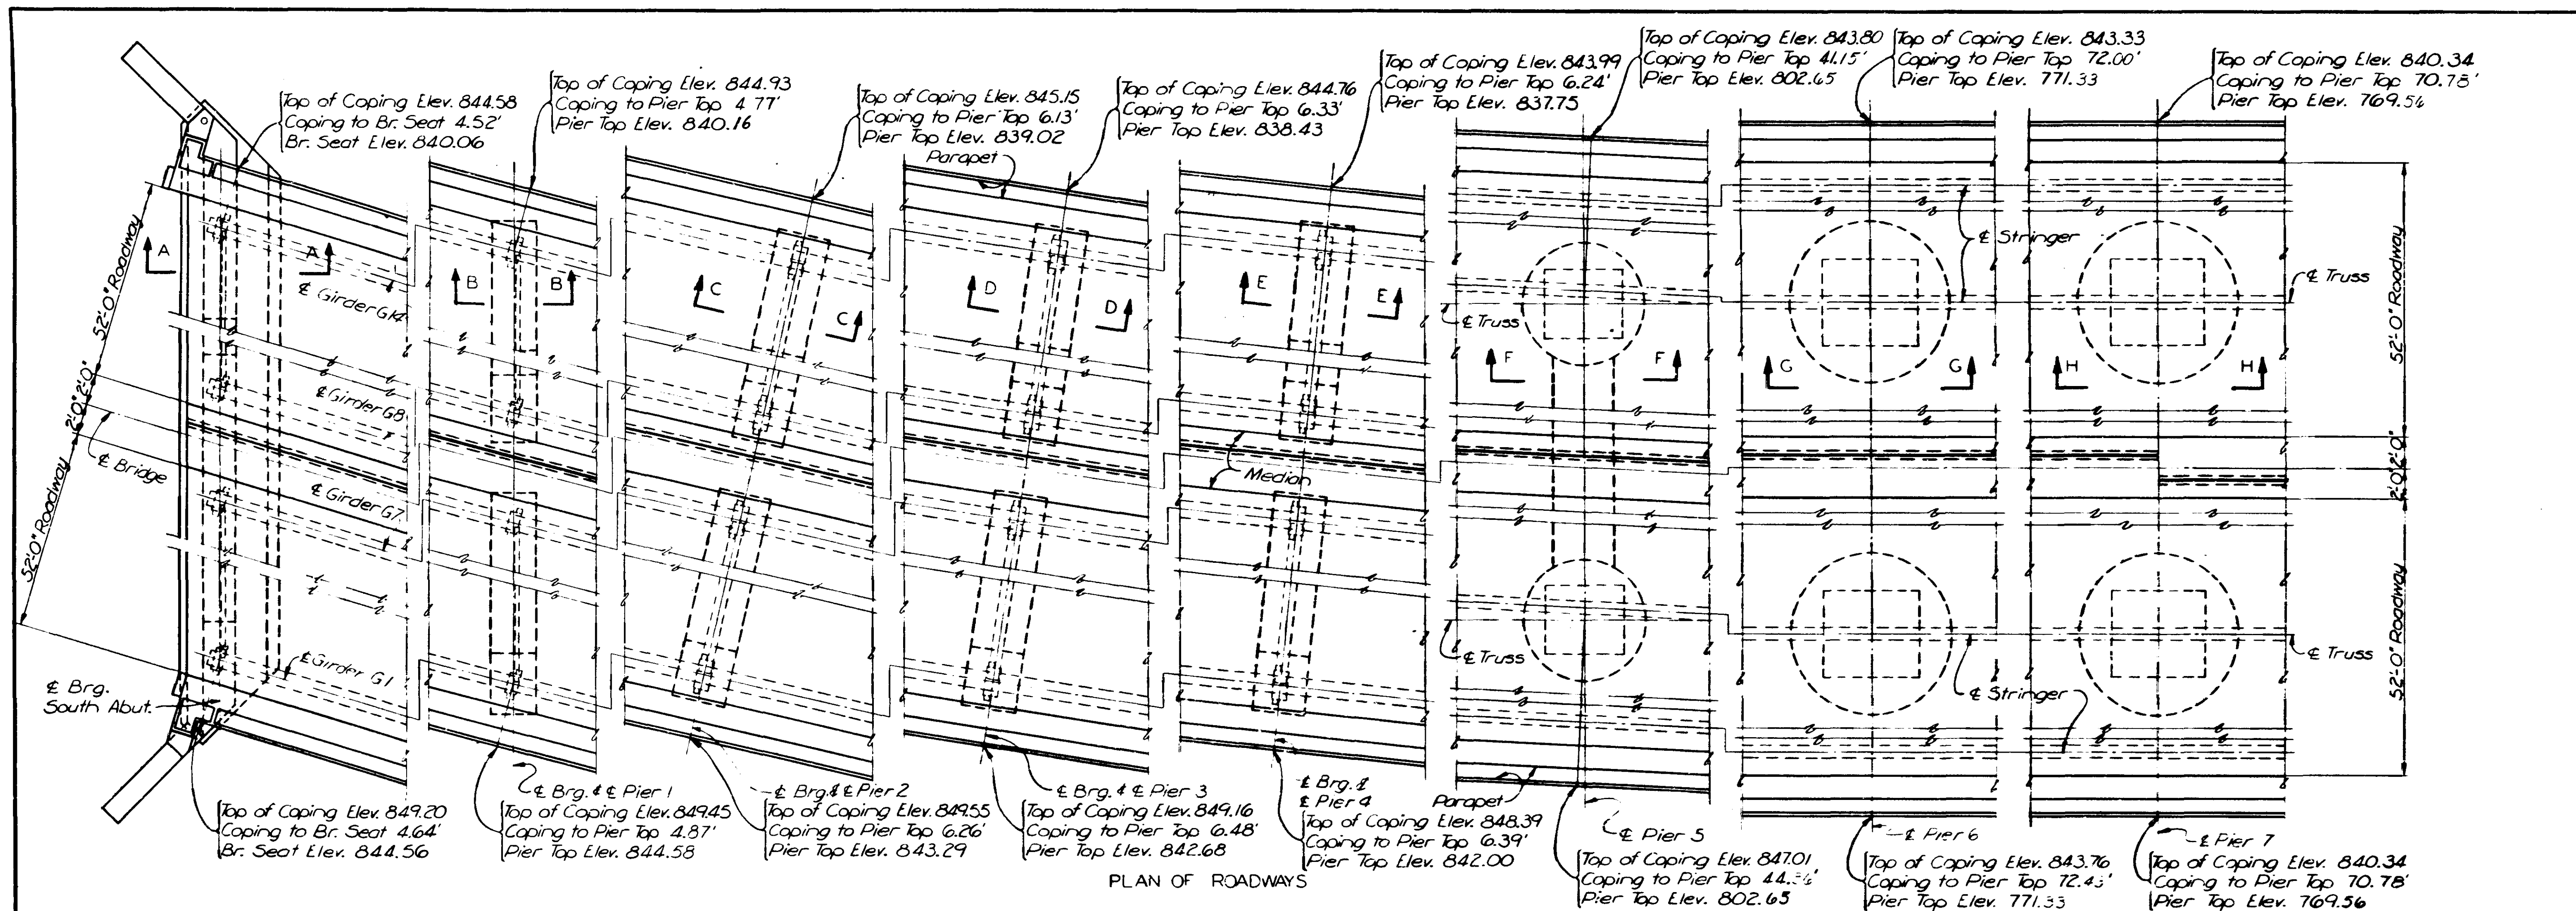 Top of Coping Elev. 844.58
Coping to Br. Seat 4.52'
Br. Seat Elev. 840.06
Top of Coping Elev. 844.93
Coping to Pier Top 4.77'
Pier Top Elev. 840.16
Top of Coping Elev. 845.15
Coping to Pier Top 6.13'
Pier Top Elev. 839.02
Parapet
Top of Coping Elev. 844.76
Coping to Pier Top 6.33'
Pier Top Elev. 838.43
Top of Coping Elev. 843.99
Coping to Pier Top 6.24'
Pier Top Elev. 837.75
Top of Coping Elev. 843.80
Coping to Pier Top 41.15'
Pier Top Elev. 802.65
Top of Coping Elev. 843.33
Coping to Pier Top 72.00'
Pier Top Elev. 771.33
Top of Coping Elev. 840.34
Coping to Pier Top 70.78'
Pier Top Elev. 769.56
52'-0" Roadway
2'-0"
2'-0"
52'-0" Roadway
A A
B B
C
C
D
D
E
E
F F
G G
H H
℄ Girder G14
℄ Girder G8
℄ Bridge
℄ Girder G7
℄ Girder G1
℄ Brg.
South Abut.
Median
℄ Truss
℄ Truss
℄ Stringer
℄ Stringer
℄ Truss
℄ Truss
52'-0" Roadway
2'-0"
2'-0"
52'-0" Roadway
℄ Brg. & ℄ Pier 1
℄ Brg. & ℄ Pier 2
℄ Brg. & ℄ Pier 3
℄ Brg. &
℄ Pier 4
Parapet
℄ Pier 5
℄ Pier 6
℄ Pier 7
Top of Coping Elev. 849.20
Coping to Br. Seat 4.64'
Br. Seat Elev. 844.56
Top of Coping Elev. 849.45
Coping to Pier Top 4.87'
Pier Top Elev. 844.58
Top of Coping Elev. 849.55
Coping to Pier Top 6.26'
Pier Top Elev. 843.29
Top of Coping Elev. 849.16
Coping to Pier Top 6.48'
Pier Top Elev. 842.68
Top of Coping Elev. 848.39
Coping to Pier Top 6.39'
Pier Top Elev. 842.00
Top of Coping Elev. 847.01
Coping to Pier Top
Pier Top Elev. 802.65
Top of Coping Elev. 843.76
Coping to Pier Top
Pier Top Elev. 771.33
Top of Coping Elev. 840.34
Coping to Pier Top 70.78'
Pier Top Elev. 769.56
PLAN OF ROADWAYS